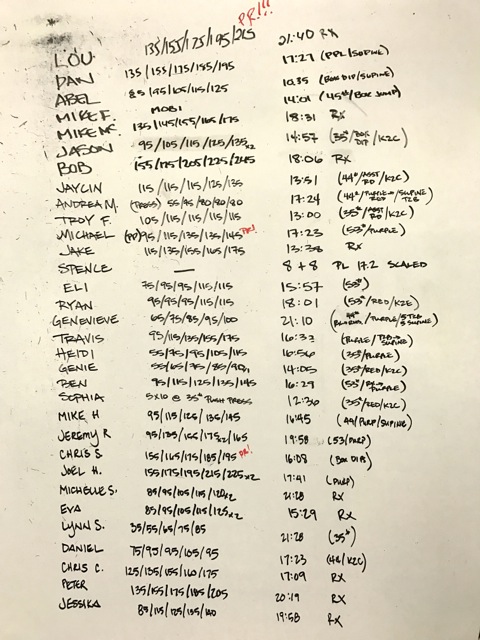 PR!!!
LOU 135/155/175/195/215 21:40 RX
DAN 135/155/175/185/195 17:27 (PPL/SUPINE)
ABEL 85/95/105/115/125 10:35 (BOX DIP/SUPINE)
MIKE F. MOBI 14:01 (45#/BOX JUMP)
MIKE M. 135/145/155/165/175 18:31 RX
JASON 95/105/115/125/135x2 14:57 (35#/BOX DIP/K2C)
BOB 155/175/205/225/245 18:06 RX
JAYLIN 115/115/115/125/135 13:51 (44#/ASST RD/K2C)
ANDREA M. (PRESS) 55/75/80/80/80 17:24 (44#/PURPLE/SUPINE T2B)
TROY F. 105/115/115/115/115 13:00 (35#/ASST RD/K2C)
MICHAEL (PP) 95/115/135/135/145 PR! 17:23 (53#/PURPLE)
JAKE 115/135/155/165/175 13:38 RX
SPENCE — 8 + 8 PL 17.2 SCALED
ELI 75/95/95/115/115 15:57 (53#)
RYAN 95/95/95/115/115 18:01 (53#/RED/K2E)
GENEVIEVE 65/75/85/95/100 21:10 (44#/PURPLE/5 T2B 5 SUPINE)
TRAVIS 95/115/135/155/175 16:33 (PURPLE/SUPINE)
HEIDI 55/75/95/105/115 16:56 (35#/PURPLE)
GENIE 55/65/75/85/90 14:05 (35#/RED/K2C)
BEN 95/115/125/135/145 16:29 (53#/PURPLE)
SOPHIA 5x10 @ 35# PUSH PRESS 12:30 (35#/RED/K2C)
MIKE H 95/115/135/145 16:45 (44/PURP/SUPINE)
JEREMY R 95/135/155/175x2/165 19:58 (53/PURP)
CHRIS S 155/165/175/185/195 PR! 16:08 (BOX DIPS)
JOEL H. 155/175/195/215/225x2 17:41 (PURP)
MICHELLE S. 85/95/105/115/120x2 21:28 RX
EVA 85/95/105/115/125x2 15:29 RX
LYNN S. 35/55/65/75/85 21:28 (35#)
DANIEL 75/95/95/105/95 17:23 (44/K2C)
CHRIS C. 125/135/155/160/175 17:09 RX
PETER 135/155/175/185/205 20:19 RX
JESSIKA 85/115/125/135/140 19:58 RX